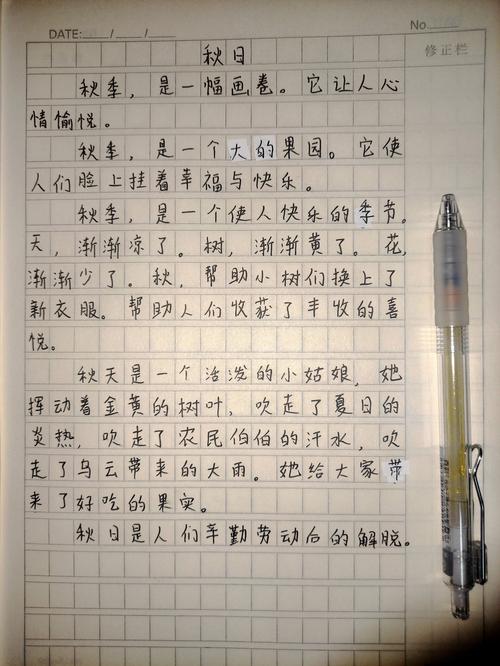 DATE: / /
No.
修正栏
秋日
秋季，是一幅画卷。它让人心
情愉悦。
秋季，是一个大的果园。它使
人们脸上挂着幸福与快乐。
秋季，是一个使人快乐的季节。
天，渐渐凉了。树，渐渐黄了。花，
渐渐少了。秋，帮助小树们换上了
新衣服。帮助人们收获了丰收的喜
悦。
秋天是一个活泼的小姑娘，她
挥动着金黄的树叶，吹走了夏日的
炎热，吹走了农民伯伯的汗水，吹
走了乌云带来的大雨。她给大家带
来了好吃的果实。
秋日是人们辛勤劳动后的解脱。